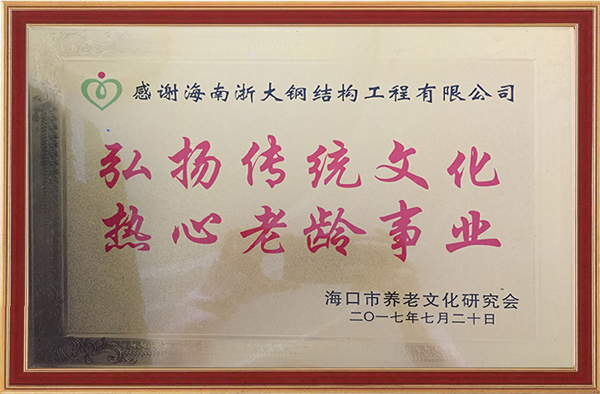 感谢海南浙大钢结构工程有限公司
弘扬传统文化
热心老龄事业
海口市养老文化研究会
二〇一七年七月二十日